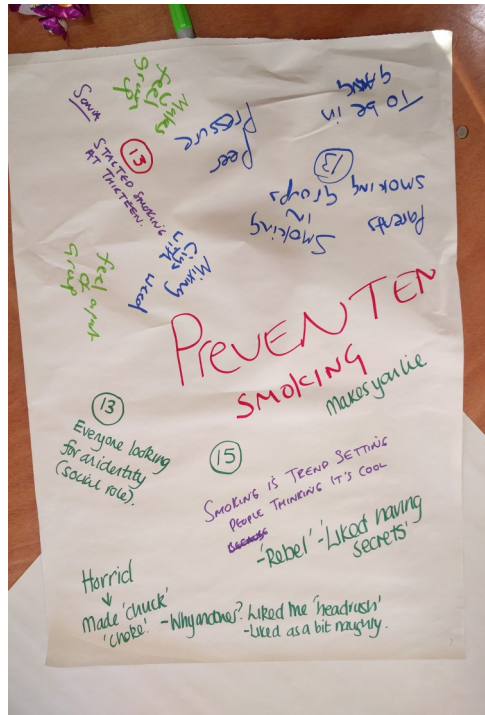 Sonia
Makes
feel
grown
up
13
STARTED SMOKING
AT THIRTEEN.
Peer
Pressure
To be in
GANG
13
Smoking
in
groups
Parents
SMOKING
Mixing
Cigs
with
weed
feel a part
of
Group
PREVENTEN
SMOKING
Makes you lie
13
Everyone looking
for an identity
(social role).
15
SMOKING IS TREND SETTING
PEOPLE THINKING IT'S COOL
-'Rebel' -'Liked having
secrets'
Horrid
Made 'chuck'
'choke'. -Why another? Liked the 'headrush'
-Liked as a bit naughty.